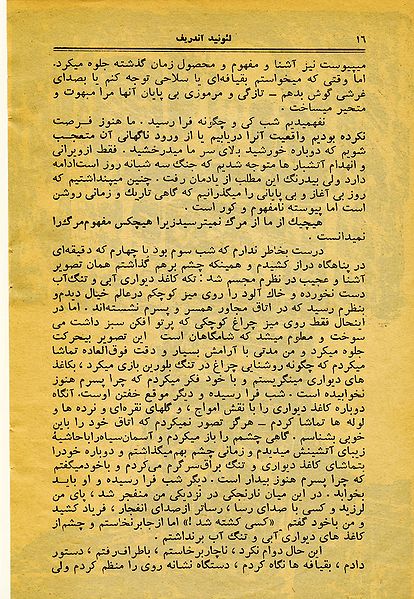 ۱۶
لئونید آندریف
میپیوست نیز آشنا و مفهوم و محصول زمان گذشته جلوه میکرد.
اما وقتی که میخواستم بقیافه‌ای یا سلاحی توجه کنم یا بصدای
غرشی گوش بدهم ـ تازگی و مرموزی بی پایان آنها مرا مبهوت و
متحیر میساخت .
نفهمیدیم شب کی و چگونه فرا رسید . ما هنوز فرصت
نکرده بودیم واقعیت آنرا دریابیم یا از ورود ناگهانی آن متعجب
شویم که دوباره خورشید بالای سر ما میدرخشید . فقط ازویرانی
و انهدام آتشبار ها متوجه شدیم که جنگ سه شبانه روز است‌ادامه
دارد ولی بیدرنگ این مطلب از یادمان رفت . چنین میپنداشتیم که
روز بی آغاز و بی پایانی را میگذرانیم که گاهی تاریک و زمانی روشن
است اما پیوسته نامفهوم و کور است .
هیچیک از ما از مرگ نمیترسیدزیرا هیچکس مفهوم‌مرگ‌را
نمیدانست .
درست بخاطر ندارم که شب سوم بود یا چهارم که دقیقه‌ای
در پناهگاه دراز کشیدم و همینکه چشم برهم گذاشتم همان تصویر
آشنا و عجیب در نظرم مجسم شد : تکه کاغذ دیواری آبی و تنگ‌آب
دست نخورده و خاك آلود را روی میز کوچکم درعالم خیال دیدم‌و
بنظرم رسید که در اتاق مجاور همسر و پسرم نشسته‌اند . اما در
اینحال فقط روی میز چراغ کوچکی که پرتو افکن سبز داشت می
سوخت و معلوم میشد که شامگاهان است این تصویر بیحرکت
جلوه میکرد و من مدتی با آرامش بسیار و دقت فوق‌العاده تماشا
میکردم که چگونه روشنایی چراغ در تنگ بلورین بازی میکرد ، بکاغذ
های دیواری مینگریستم و با خود فکر میکردم که چرا پسرم هنوز
نخوابیده است . شب فرا رسیده و دیگر موقع خفتن اوست. آنگاه
دوباره کاغذ دیواری را با نقش امواج ، و گلهای نقره‌ای و نرده ها و
لوله ها تماشا کردم ـ هرگز تصور نمیکردم که اتاق خود را باین
خوبی بشناسم . گاهی چشمم را باز میکردم و آسمان‌سیاه‌راباحاشیهٔ
زیبای آتشینش میدیدم و زمانی چشم بهم‌میگذاشتم و دوباره خودرا
بتماشای کاغذ دیواری و تنگ براق‌سرگرم می‌کردم و باخودمیگفتم
که چرا پسرم هنوز بیدار است . دیگر شب فرا رسیده و او باید
بخوابد . در این میان نارنجکی در نزدیکی من منفجر شد ، پای من
لرزید و کسی با صدای رسا ، رساتر ازصدای انفجار ، فریاد کشید
و من باخود گفتم «کسی کشته شد !» اما ازجابرنخاستم و چشم‌از
کاغذ های دیواری آبی و تنگ آب برنداشتم .
این حال دوام نکرد ، ناچاربرخاستم ، باطراف‌رفتم ، دستور
دادم ، بقیافه ها نگاه کردم ، دستگاه نشانه روی را منظم کردم ولی